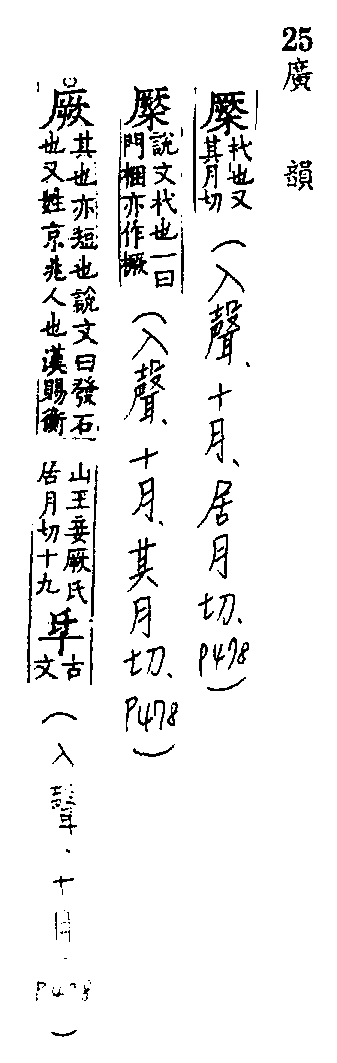 25
廣韻
橜杙也又其月切(入聲、十月、居月切、P478)
橜說文杙也一曰門梱亦作橛(入聲、十月、其月切、P478)
厥其也亦短也說文曰發石也又姓京兆人也漢賜衡山王妾厥氏居月切十九 古文(入聲.十月.P478)